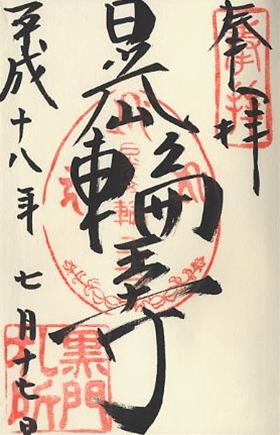 奉拝
日光山輪王寺
平成十八年七月十七日
黒門
札所